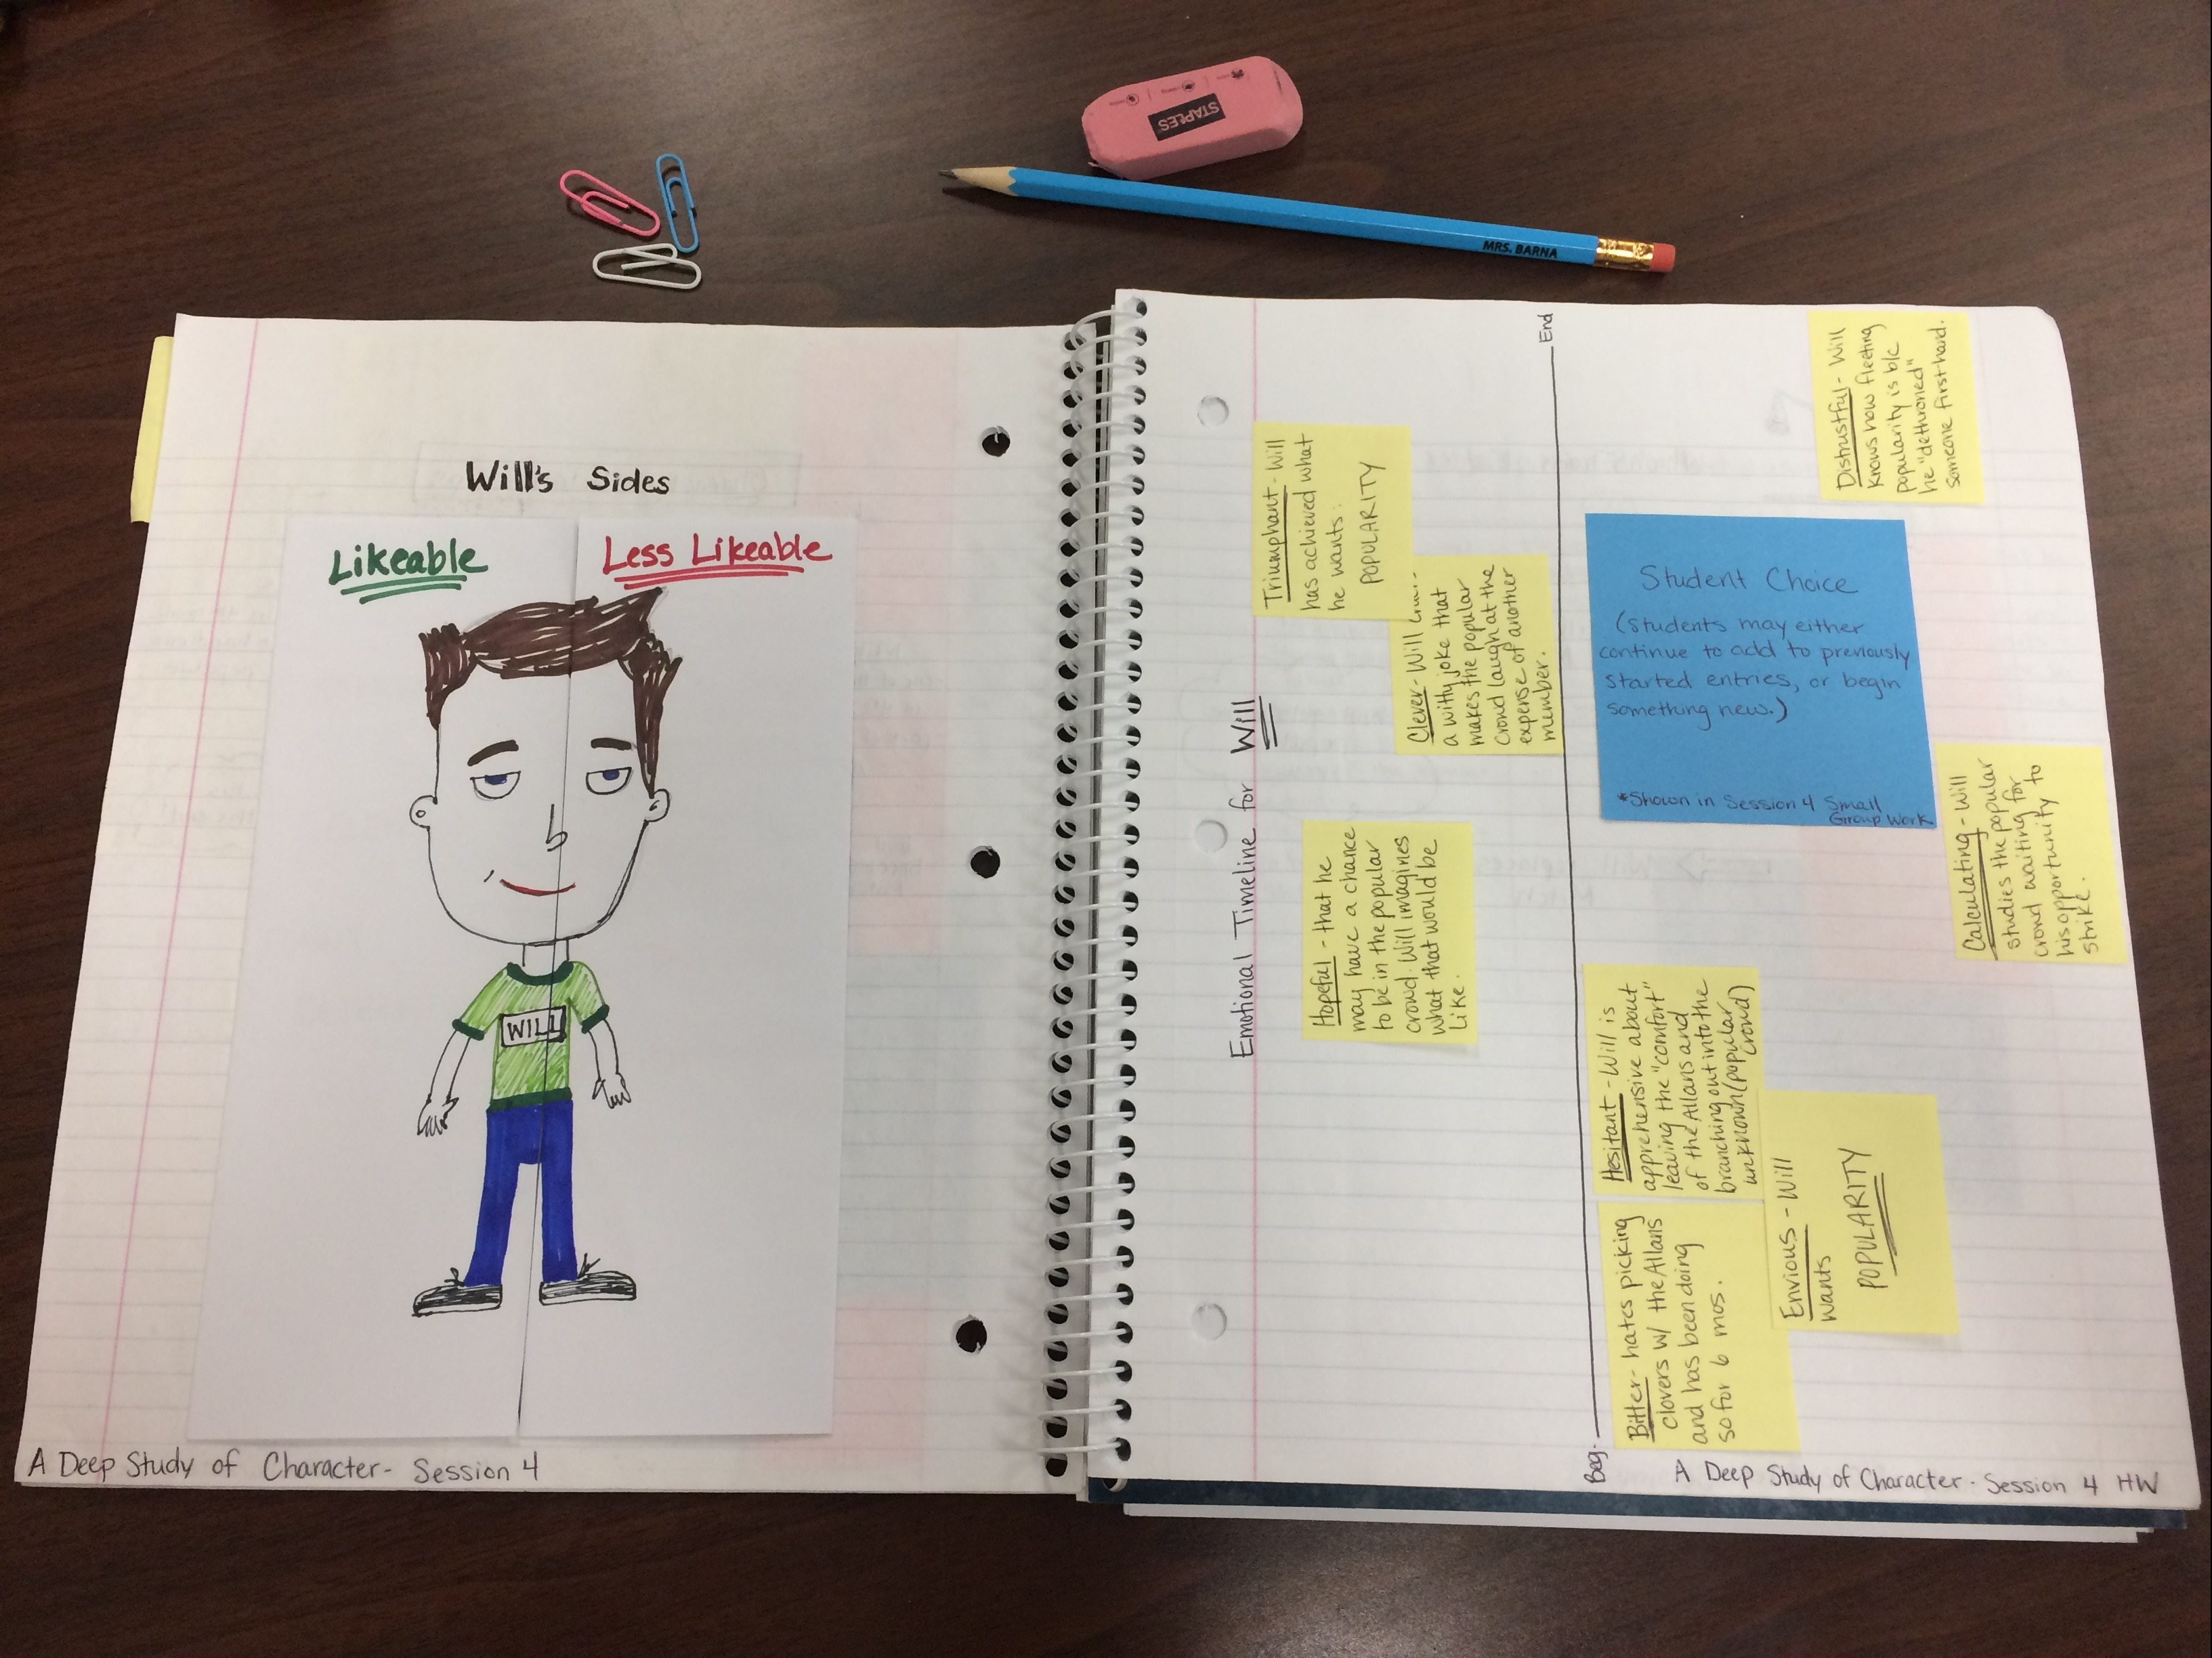 STAPLES
MRS. BARNA
Will's Sides
Likeable
Less Likeable
WILL
A Deep Study of Character- Session 4
Emotional Timeline for Will
Beg.
End
Triumphant - Will
has achieved what
he wants:
POPULARITY
Clever - Will
a witty joke that
makes the popular
crowd laugh at the
expense of another
member.
Hopeful - that he
may have a chance
to be in the popular
crowd. Will imagines
what that would be
like.
Distrustful - Will
knows how fleeting
popularity is b/c
he "dethroned"
someone first-hand.
Student Choice
(Students may either
continue to add to previously
started entries, or begin
something new.)
*Shown in Session 4 Small
Group Work
Calculating - Will
studies the popular
crowd waiting for
his opportunity to
strike.
Hesitant - Will is
apprehensive about
leaving the "comfort"
of the Allans and
branching out into the
unknown (popular
crowd)
Bitter - hates picking
clovers w/ the Allans
and has been doing
so for 6 mos.
Envious - Will
wants
POPULARITY
A Deep Study of Character - Session 4 HW